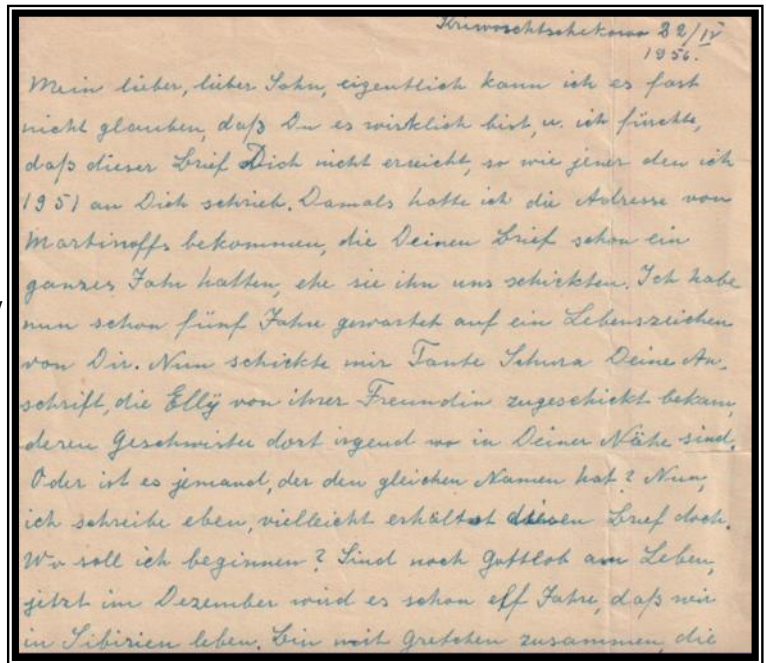 Kriwoschtschekowo 22/IV
1956.
Mein lieber, lieber Sohn, eigentlich kann ich es fast
nicht glauben, daß Du es wirklich bist, u. ich fürchte,
daß dieser Brief Dich nicht erreicht, so wie jener den ich
1951 an Dich schrieb. Damals hatte ich die Adresse von
Martinoffs bekommen, die Deinen Brief schon ein
ganzes Jahr hatten, ehe sie ihn uns schickten. Ich habe
nun schon fünf Jahre gewartet auf ein Lebenszeichen
von Dir. Nun schickte mir Tante Schura Deine An-
schrift, die Elly von ihrer Freundin zugeschickt bekam,
deren Geschwister dort irgend wo in Deiner Nähe sind.
Oder ist es jemand, der den gleichen Namen hat? Nun,
ich schreibe eben, vielleicht erhältst diesen Brief doch.
Wo soll ich beginnen? Sind noch gottlob am Leben,
jetzt im Dezember wird es schon elf Jahre, daß wir
in Sibirien leben. Bin mit Gretchen zusammen, die